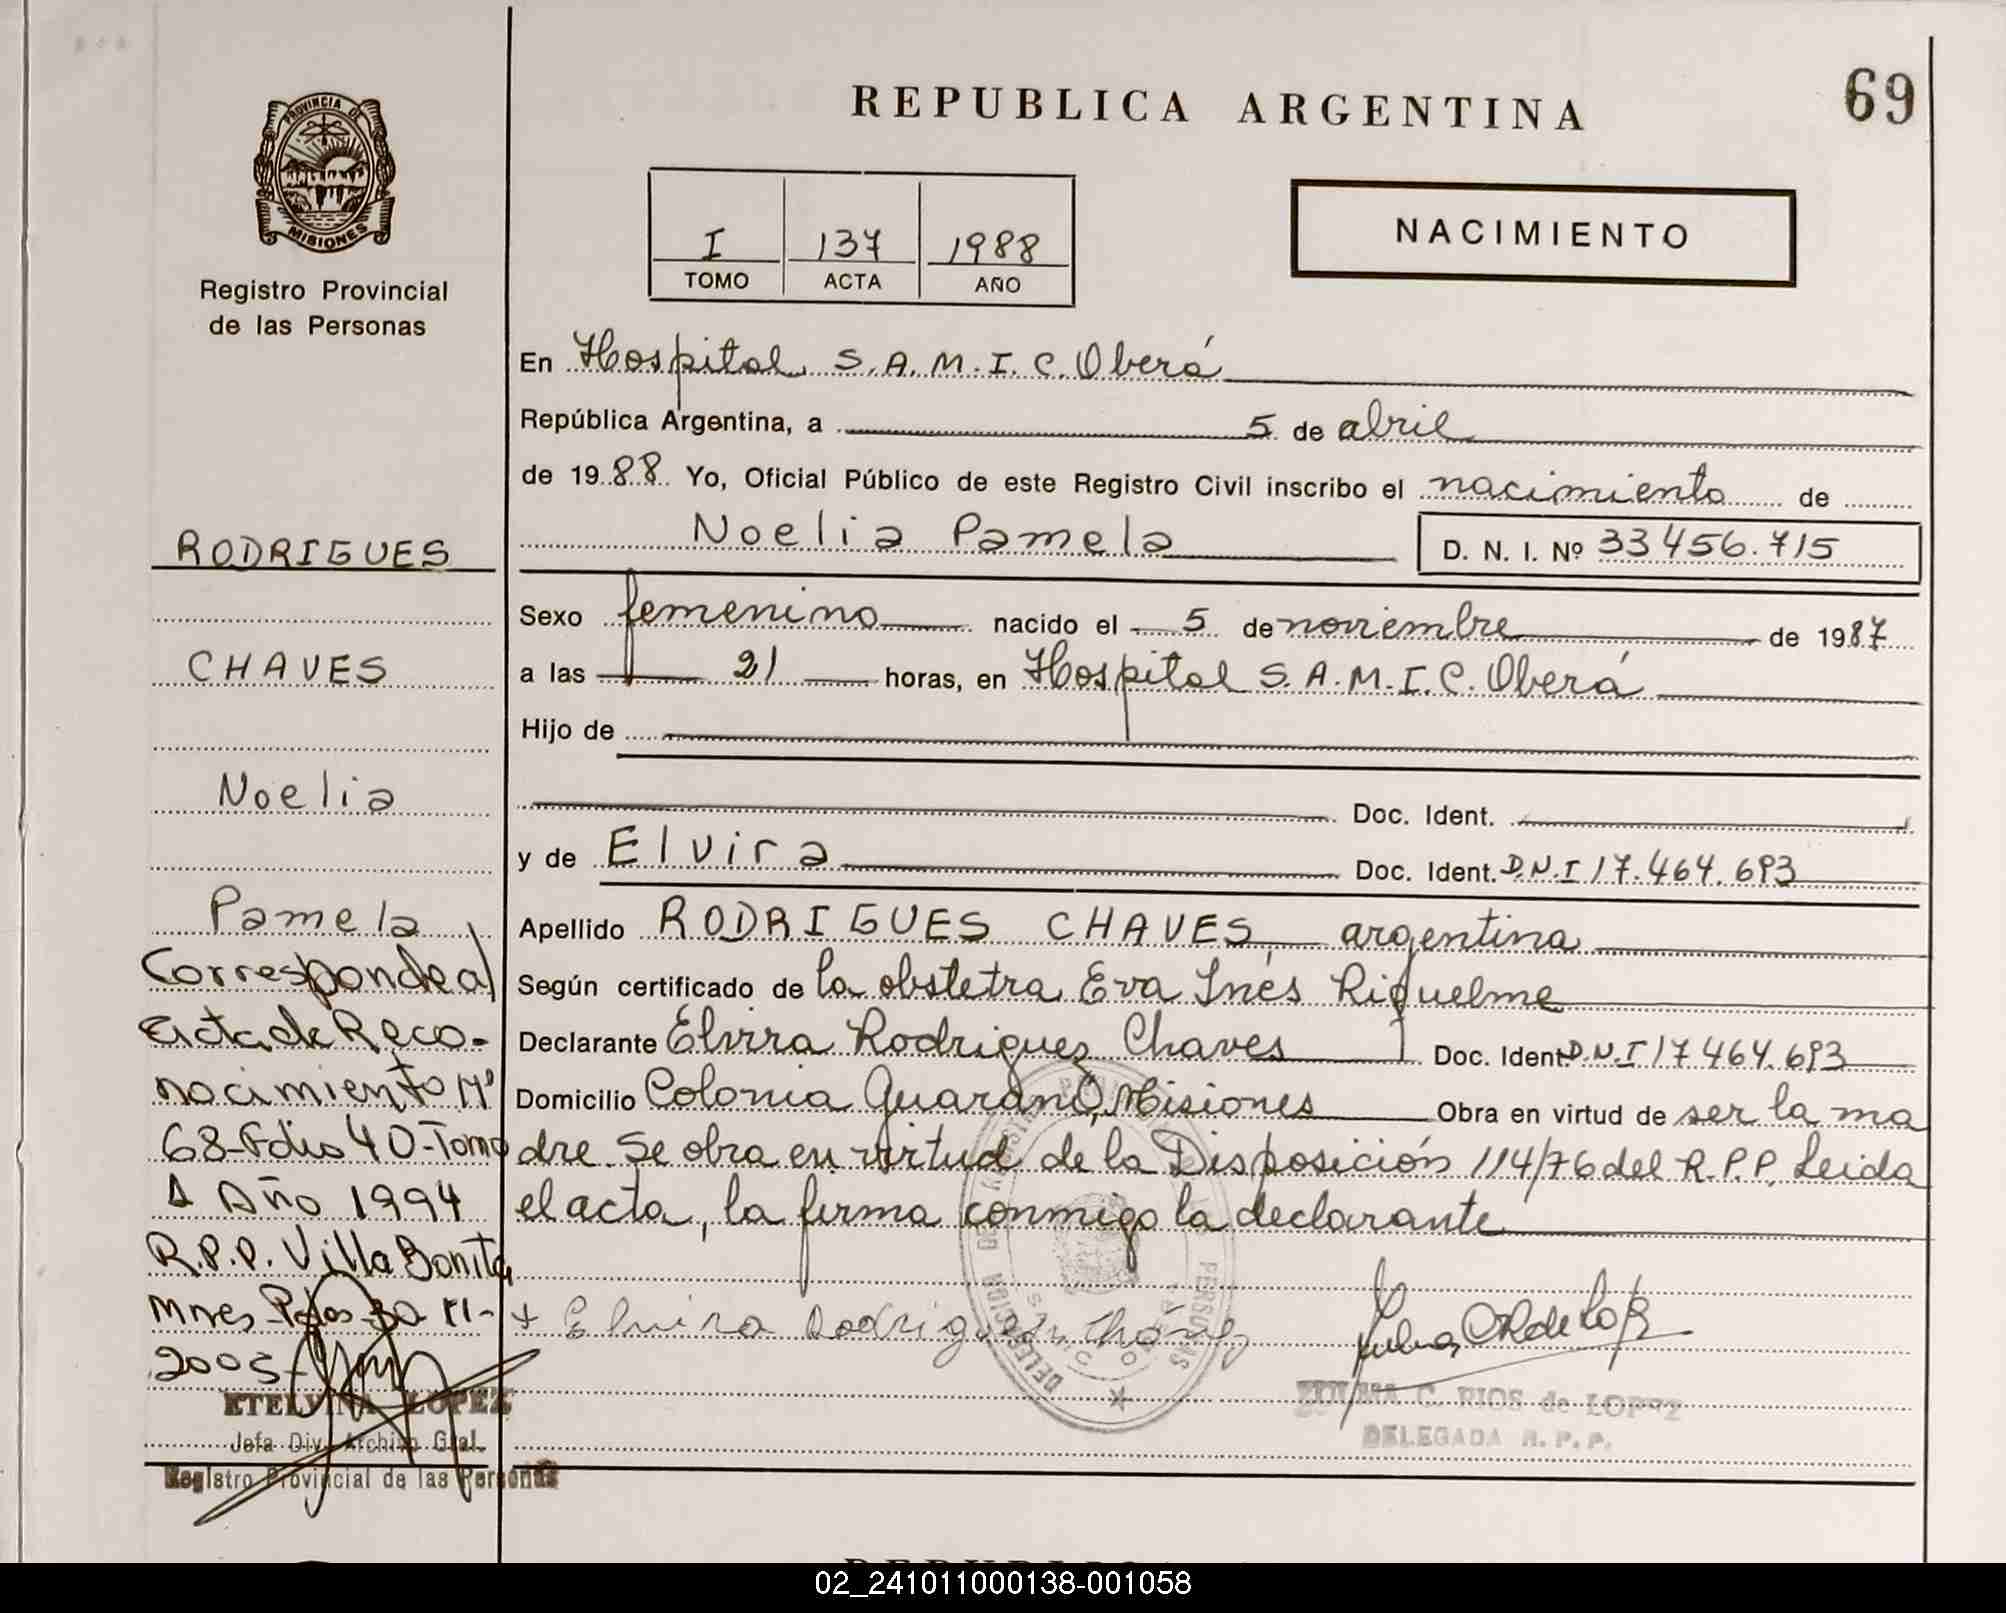 REPUBLICA ARGENTINA
69
PROVINCIA DE
MISIONES
Registro Provincial
de las Personas
I 137 1988
TOMO ACTA AÑO
NACIMIENTO
En Hospital S.A.M.I.C. Oberá
República Argentina, a 5 de abril
de 1988 Yo, Oficial Público de este Registro Civil inscribo el nacimiento de
Noelia Pamela D. N. I. Nº 33456.715
Sexo femenino nacido el 5 de noviembre de 1987
a las 21 horas, en Hospital S.A.M.I.C. Oberá
Hijo de
Doc. Ident.
y de Elvira Doc. Ident. D.N.I 17.464.693
Apellido RODRIGUES CHAVES argentina
Según certificado de la obstetra Eva Inés Riquelme
Declarante Elvira Rodrigues Chaves Doc. Ident D.N.I 17464.693
Domicilio Colonia Guaraní, Misiones Obra en virtud de ser la ma
dre. Se obra en virtud de la Disposición 114/76 del R.P.P. Leida
el acta, la firma conmigo la declarante
RODRIGUES
CHAVES
Noelia
Pamela
Corresponde al
acta de Reco-
nocimiento Nº
68-Folio 40-Tomo
1 Año 1994
R.P.P. Villa Bonita
Mnes-Pdas-30-XI-
2005-
ETELVINA LOPEZ
Jefa Div. Archivo Gral.
Registro Provincial de las Personas
+ Elvira Rodrigues Chaves
ZULMA C. RIOS de LOPEZ
DELEGADA R. P. P.
02_241011000138-001058